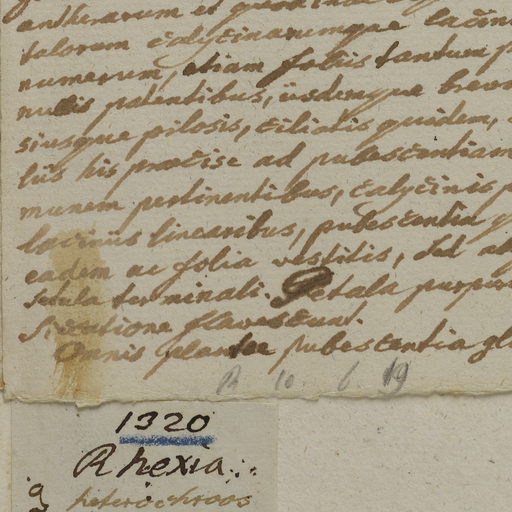 antherarum et
talorum calycinarumque lacin
numerum, etiam foliis tantum p
nullis patentibus, iisdemque brevi
siusque pilosis, ciliatis quidem,
liis his praecise ad pubescentiam
munem pertinentibus, calycinis p
laciniis linearibus, pubescentia
eadem ac folia vestitis, sed
setula terminali. Petala purpur
siccatione flavescunt.
Omnis plantae pubescentia gl
R 10. 6. 19
1320
Rhexia
g heterochroos